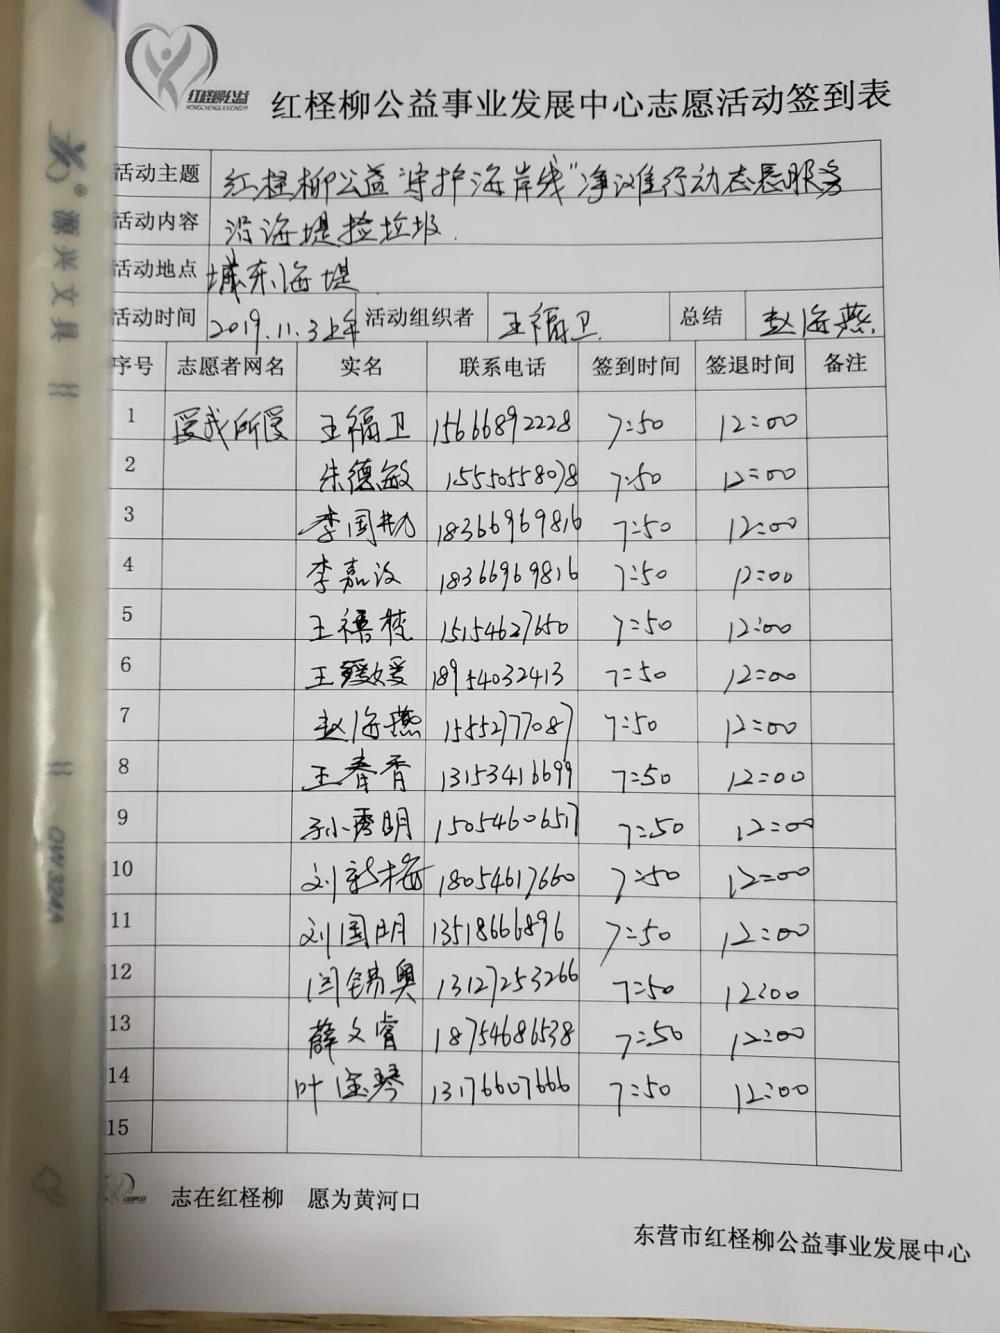 红柽柳公益
HONGCHENGLIUGONGYI
红柽柳公益事业发展中心志愿活动签到表
活动主题 红柽柳公益"守护海岸线"净滩行动志愿服务
活动内容 沿海堤捡垃圾.
活动地点 城东海堤.
活动时间 2019.11.3上午 活动组织者 王福卫 总结 赵海燕
序号 志愿者网名 实名 联系电话 签到时间 签退时间 备注
1 爱我所爱 王福卫 15666892228 7:50 12:00
2 朱德敏 15550558078 7:50 12:00
3 李国 18366969816 7:50 12:00
4 李嘉 18366969816 7:50 12:00
5 王禧梵 15154627650 7:50 12:00
6 王媛媛 18954032413 7:50 12:00
7 赵海燕 15552777087 7:50 12:00
8 王春香 13153416699 7:50 12:00
9 孙小秀明 15054606517 7:50 12:00
10 刘新梅 18054617660 7:50 12:00
11 刘国明 13518666896 7:50 12:00
12 闫锦奥 13127253266 7:50 12:00
13 薛文睿 18754686538 7:50 12:00
14 叶宝琴 13176607666 7:50 12:00
15
志在红柽柳 愿为黄河口
东营市红柽柳公益事业发展中心
源兴文具
QW324A